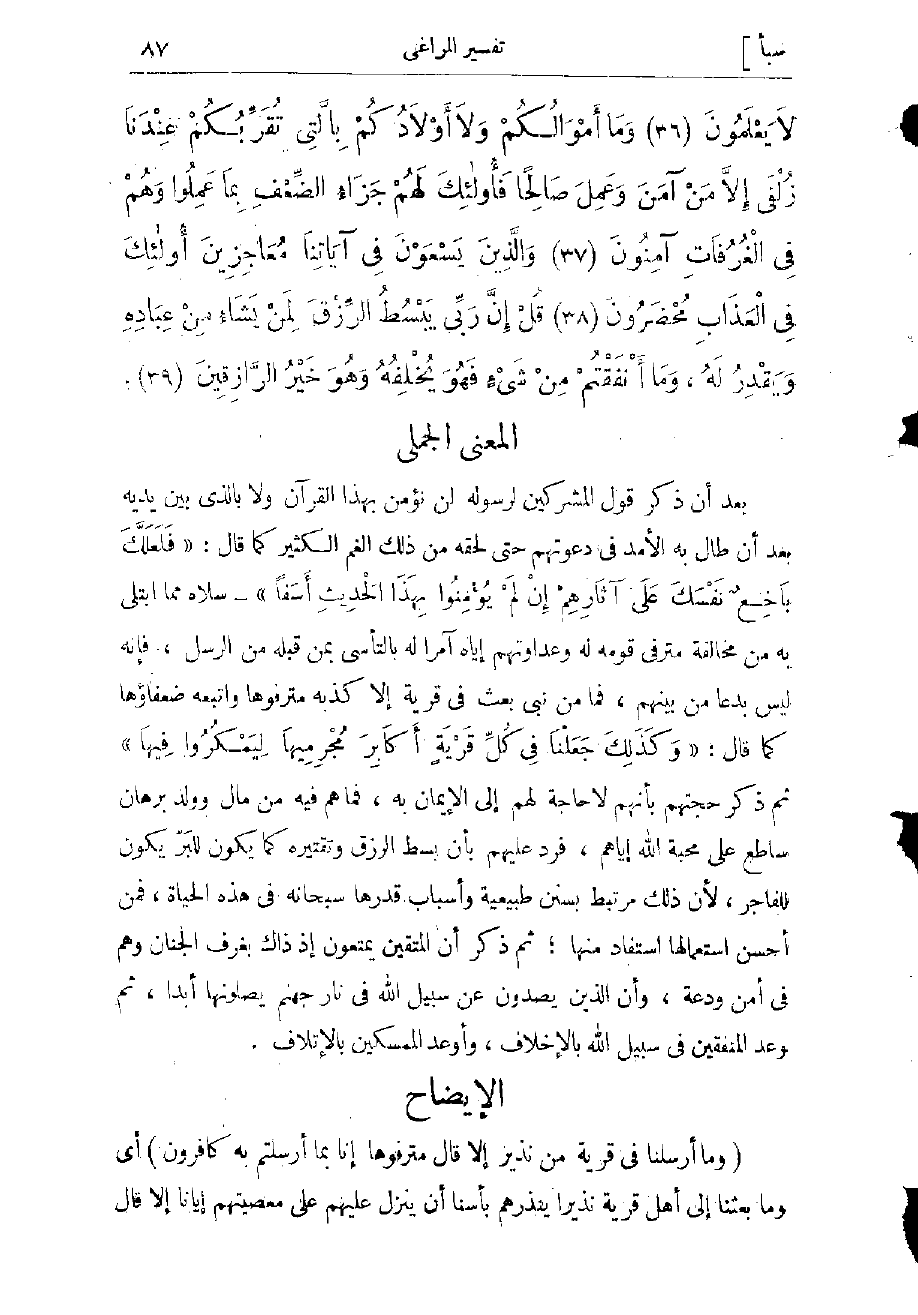 سبأ ] تفسير المراغى ٨٧
لَا يَعْلَمُونَ (٣٦) وَمَا أَمْوَالُكُمْ وَلَا أَوْلَادُكُمْ بِالَّتِى تُقَرِّبُكُمْ عِنْدَنَا
زُلْفَى إِلَّا مَنْ آمَنَ وَعَمِلَ صَالِحًا فَأُولٰئِكَ لَهُمْ جَزَاءُ الضِّعْفِ بِمَا عَمِلُوا وَهُمْ
فِى الْغُرُفَاتِ آمِنُونَ (٣٧) وَالَّذِينَ يَسْعَوْنَ فِى آيَاتِنَا مُعَاجِزِينَ أُولٰئِكَ
فِى الْعَذَابِ مُحْضَرُونَ (٣٨) قُلْ إِنَّ رَبِّى يَبْسُطُ الرِّزْقَ لِمَنْ يَشَاءُ مِنْ عِبَادِهِ
وَيَقْدِرُ لَهُ ، وَمَا أَنْفَقْتُمْ مِنْ شَىْءٍ فَهُوَ يُخْلِفُهُ وَهُوَ خَيْرُ الرَّازِقِينَ (٣٩) .
المعنى الجملى
بعد أن ذكر قول المشركين لرسوله لن نؤمن بهذا القرآن ولا بالذى بين يديه
بعد أن طال به الأمد فى دعوتهم حتى لحقه من ذلك الغم الكثير كما قال : « فَلَعَلَّكَ
بَاخِعٌ نَفْسَكَ عَلَى آثَارِهِمْ إِنْ لَمْ يُؤْمِنُوا بِهَذَا الْحَدِيثِ أَسَفاً » ـ سلاه مما ابتلى
به من مخالفة مترفى قومه له وعداوتهم إياه آمرا له بالتأسى بمن قبله من الرسل ، فإنه
ليس بدعا من بينهم ، فما من نبى بعث فى قرية إلا كذبه مترفوها واتبعه ضعفاؤها
كما قال : « وَكَذَلِكَ جَعَلْنَا فِى كُلِّ قَرْيَةٍ أَكَابِرَ مُجْرِمِيهَا لِيَمْكُرُوا فِيهَا »
ثم ذكر حجتهم بأنهم لا حاجة لهم إلى الإيمان به ، فما هم فيه من مال وولد برهان
ساطع على محبة الله إياهم ، فرد عليهم بأن بسط الرزق وتقتيره كما يكون للبَرّ يكون
للفاجر ، لأن ذلك مرتبط بسنن طبيعية وأسباب قدرها سبحانه فى هذه الحياة ، فمن
أحسن استعمالها استفاد منها ؛ ثم ذكر أن المتقين يمتعون إذ ذاك بغرف الجنان وهم
فى أمن ودعة ، وأن الذين يصدون عن سبيل الله فى نار جهنم يصلونها أبدا ، ثم
وعد المنفقين فى سبيل الله بالإخلاف ، وأوعد الممسكين بالإتلاف .
الإيضاح
( وما أرسلنا فى قرية من نذير إلا قال مترفوها إنا بما أرسلتم به كافرون ) أى
وما بعثنا إلى أهل قرية نذيرا ينذرهم بأسنا أن ينزل عليهم على معصيتهم إيانا إلا قال